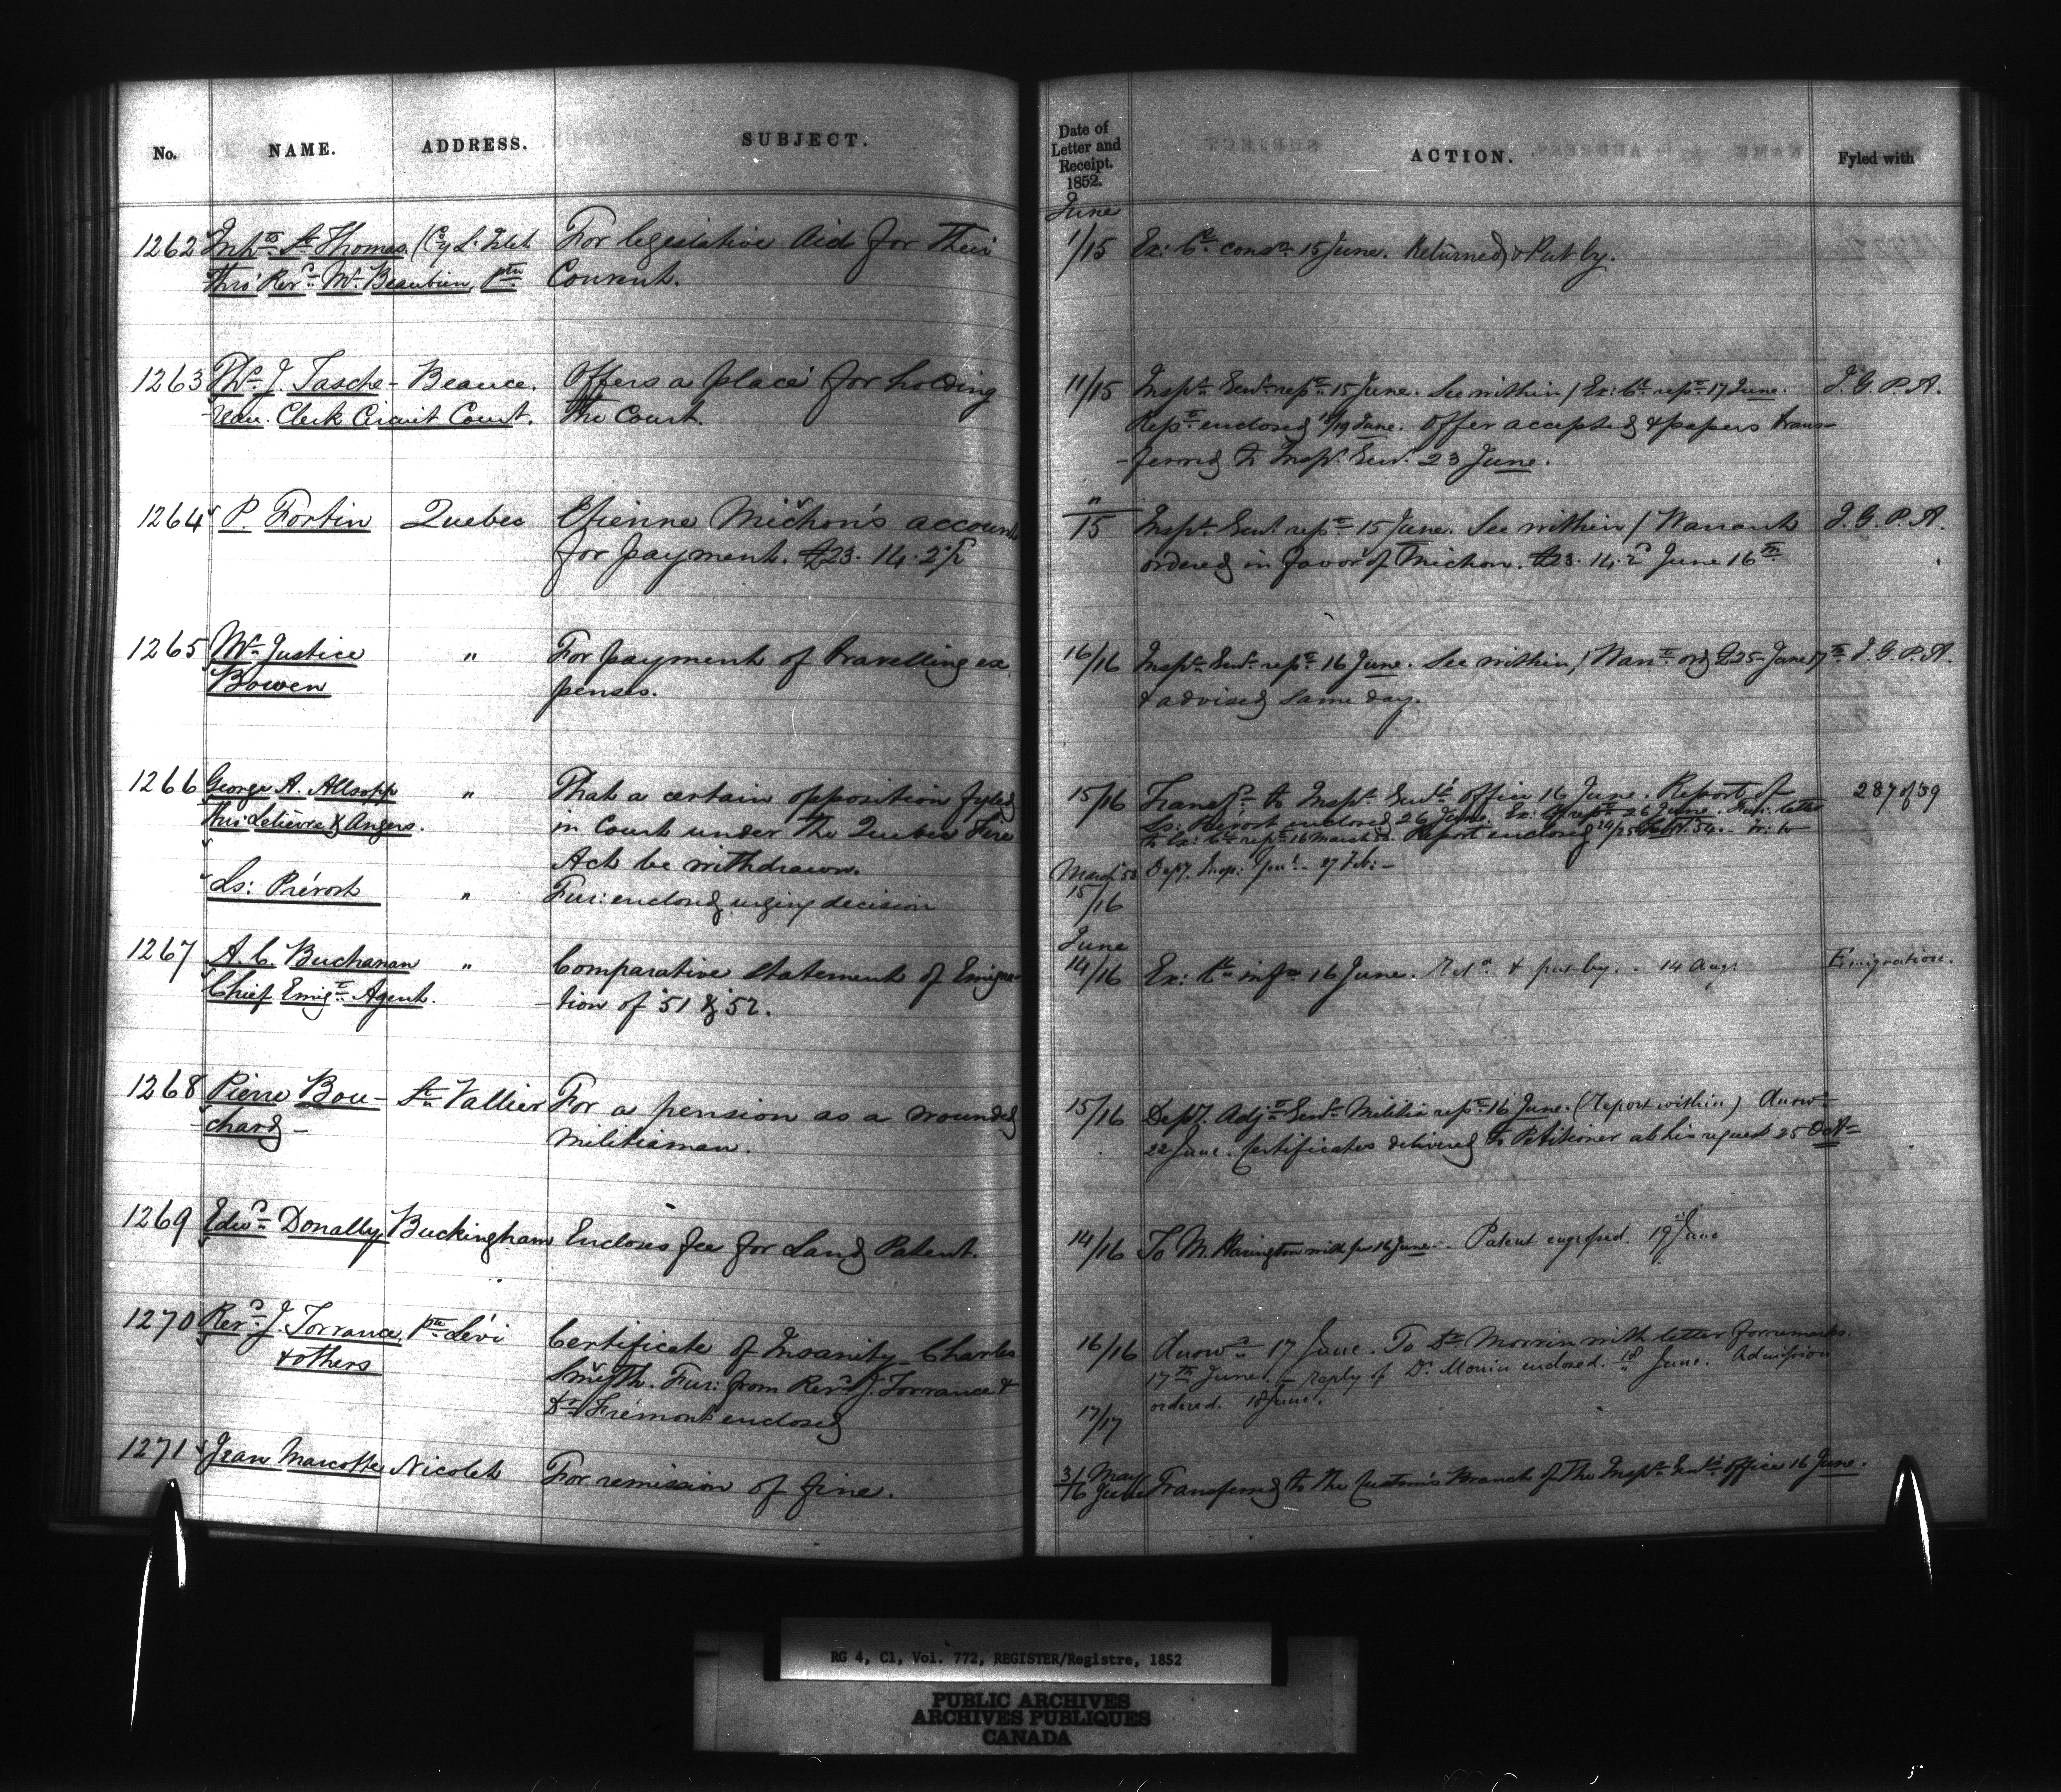 No. NAME. ADDRESS. SUBJECT.
Date of Letter and Receipt. 1852. ACTION. Fyled with
June
1262 Inhts St Thomas (Cy L'Islet For legislative Aid for their
thro' Revd Mr Beaubien Ptre Convent.
1/15 Ex: Cl consn 15 June. Returned & Put by.
1263 Ths J. Tasche- Beauce. Offers a place for holding
Clerk Circuit Court. the Court.
11/15 Inspr Genl repte 15 June. See within / Ex: Cl repte 17 June. I. G. P. A.
Repte enclosed 18/19 June. Offer accepted & papers trans-
-ferred to Inspr Genl 23 June.
1264 P. Fortin Quebec Etienne Michon's account
for payment. £23. 14. 2½
"/15 Inspr Genl repte 15 June. See within / Warrant I. G. P. A.
ordered in favor of Michon. £23. 14. 2 June 16th
1265 Mr Justice " For payment of travelling ex
Bowen penses.
16/16 Inspr Genl repte 16 June. See within / Warrt ord £25- June 17th I. G. P. A.
& advised same day.
1266 George A. Allsopp " That a certain opposition fyled
thro' Lelièvre & Angers. in Court under the Quebec Fire
Act be withdrawn.
Ls: Prévost " Fur: enclosed urging decision
15/16 Transfd to Inspr Genl's Office 16 June. Report of 287 of 59
Ls: Prévost enclosed 26 June. Ex: Cl repte 26 June. Fur: letter
to Ex: Cl repte 16 March Report enclosed 24/25 Sept. 54.
March 53 Dept. Insp: Genl - 27 Feb: -
15/16
June
1267 A. C. Buchanan " Comparative statement of Emigra-
Chief Emigt Agent. -tion of '51 & '52.
14/16 Ex: Cl infn 16 June. Retd & put by. - 14 Augt Emigration.
1268 Pierre Bou- St Vallier For a pension as a wounded
-chard- Militiaman.
15/16 Depy. Adjt Genl Militia repte 16 June. (Report within) Answd
22 June. Certificates delivered to Petitioner at his request 25 Oct-
1269 Edwd Donally Buckingham Encloses fee for Land Patent.
14/16 To M. Harington with fee 16 June. - Patent engrossed. 19 June
1270 Revd J. Torrance Pte Lévi Certificate of Insanity- Charles
& others Smyth. Fur: from Revd J. Torrance &
Dr Frémont enclosed
16/16 Answd 17 June. To Dr Morrin with letter for remarks.
17th June. - reply of Dr. Morrin enclosed. 18 June. Admission
17/17 ordered. 18 June.
1271 Jean Marcotte Nicolet For remission of fine.
31 May/16 June Transferred to the Customs Branch of the Inspr Genl's office 16 June.
RG 4, C1, Vol. 772, REGISTER/Registre, 1852
PUBLIC ARCHIVES
ARCHIVES PUBLIQUES
CANADA